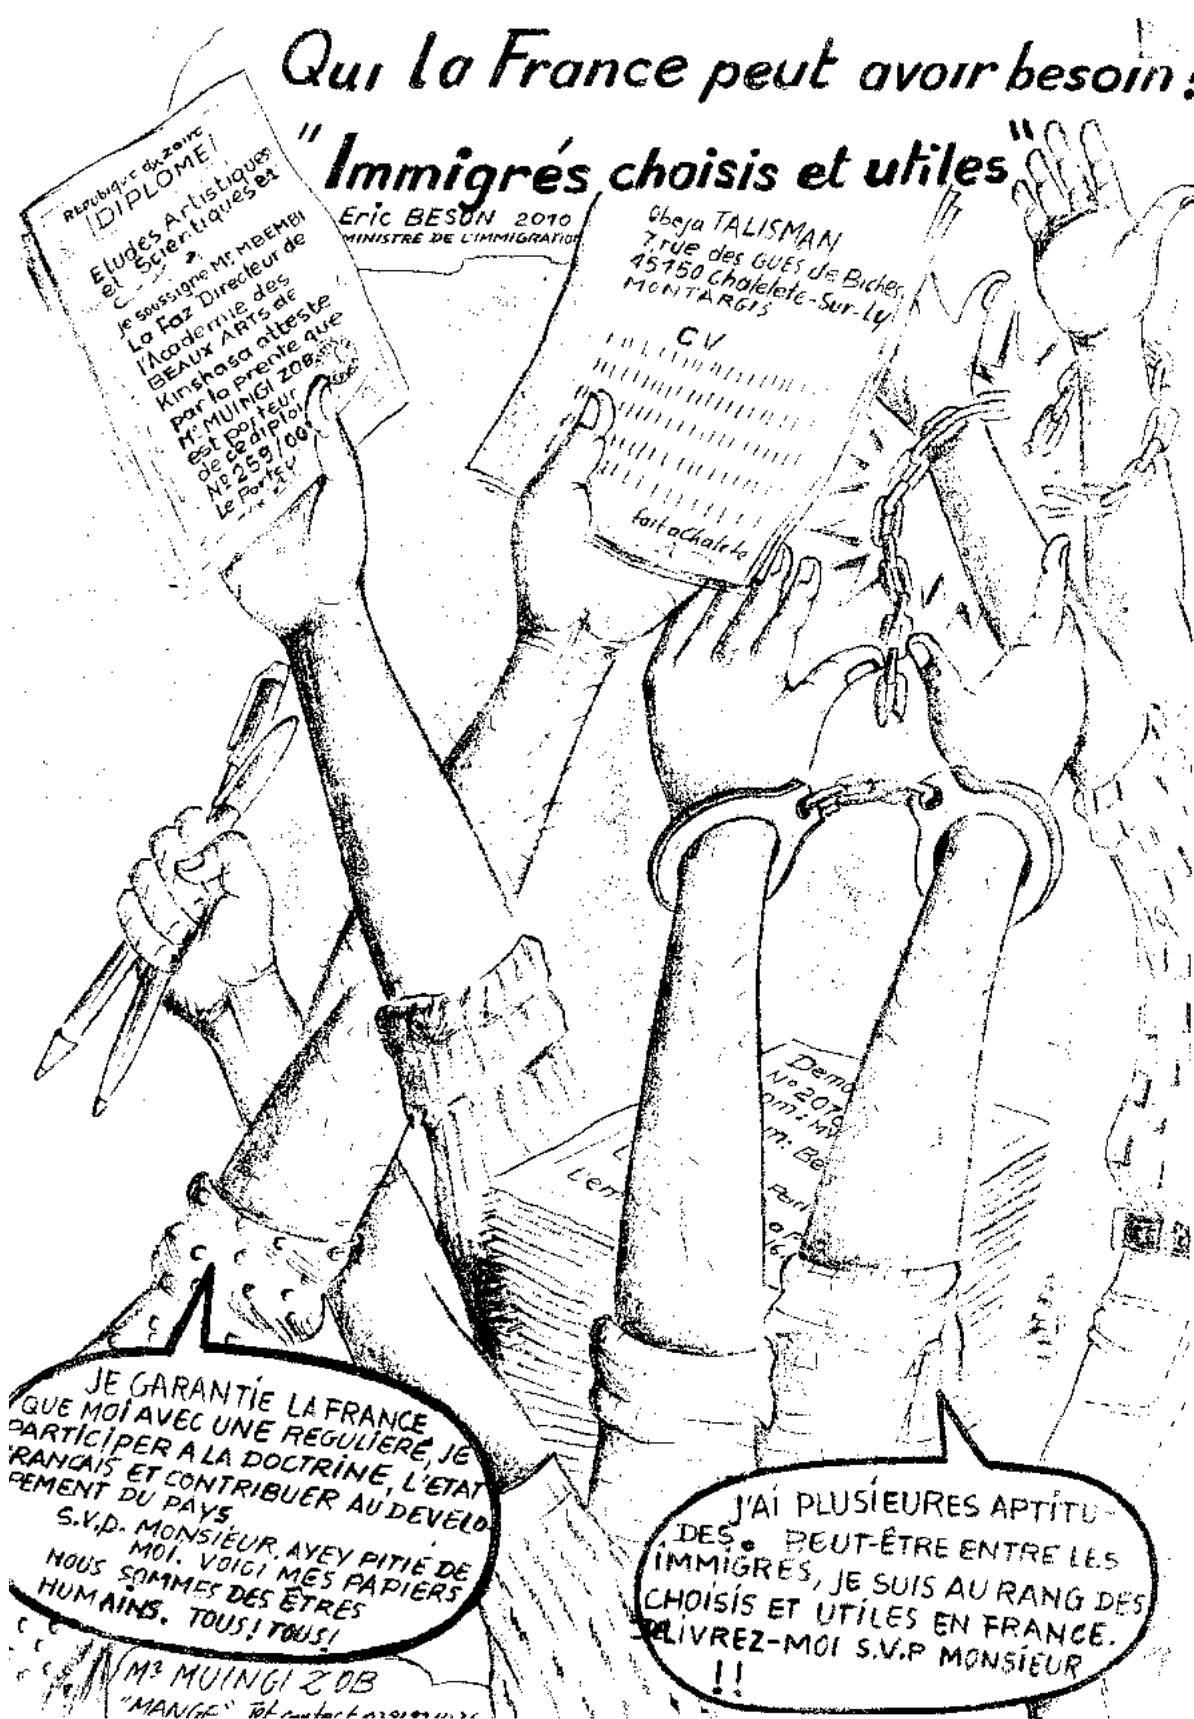 Qui la France peut avoir besoin!
"Immigrés choisis et utiles"
Eric BESON 2010
MINISTRE DE L'IMMIGRATION
République du zaire
DIPLOME!
Etudes Artistiques
et Scientiques et
Je soussigne Mr MBEMBI
La Faz Directeur de
l'Academie des
BEAUX ARTS de
Kinshasa atteste
par la prente que
Mr MUINGI ZOB
est porteur
de ce diplo
No 259/00
Le Porteur
Obeja TALISMAN
7 rue des GUES de Biches
45150 Chalelete-Sur-Ly
MONTARGIS
CV
fait a Chalete
Dem
No 2010
om: MV
m: Be
Lem
JE GARANTIE LA FRANCE
QUE MOI AVEC UNE REGULIERE, JE
PARTICIPER A LA DOCTRINE, L'ETAT
RANCAIS ET CONTRIBUER AU DEVELO-
PEMENT DU PAYS
S.V.P. MONSIEUR, AYEY PITIE DE
MOI. VOICI MES PAPIERS
NOUS SOMMES DES ÊTRES
HUMAINS. TOUS! TOUS!
J'AI PLUSIEURES APTITU-
DES. PEUT-ÊTRE ENTRE LES
IMMIGRES, JE SUIS AU RANG DES
CHOISIS ET UTILES EN FRANCE.
DELIVREZ-MOI S.V.P MONSIEUR
!!
Mr MUINGI ZOB
"MANGE" Tél contact